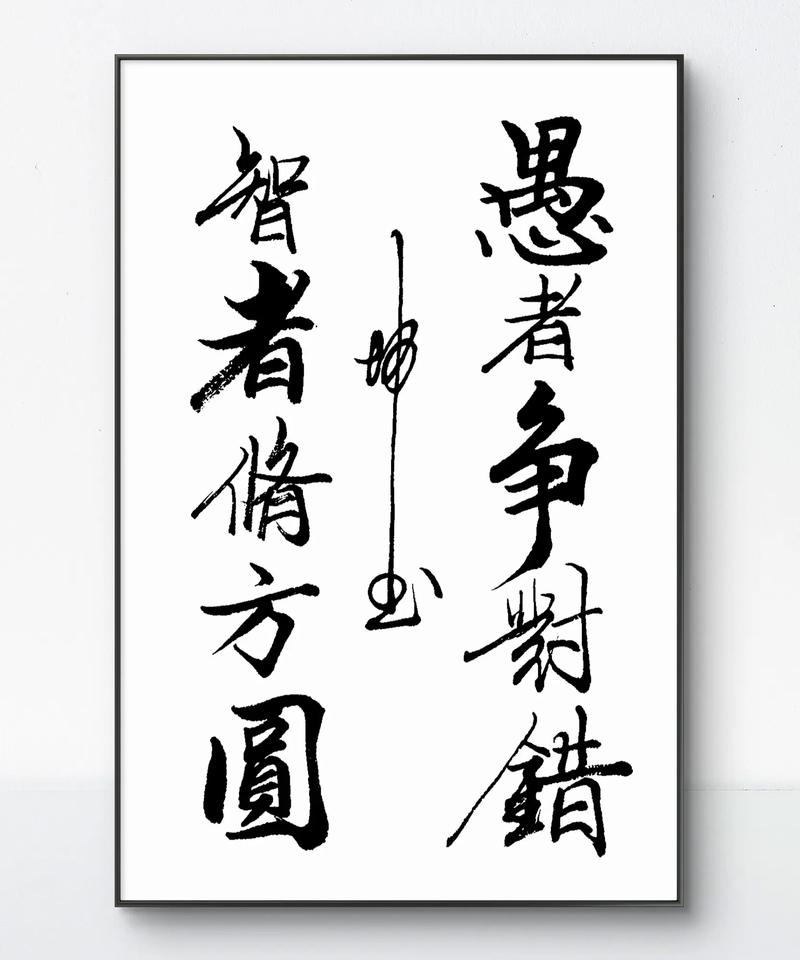 愚者争對錯
智者脩方圓